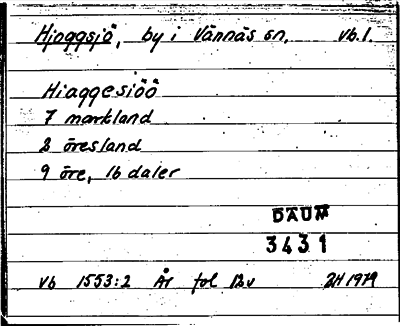 Hjoggsjö, by i Vännäs sn, Vb.l.
Hiaggesiöö
7 markland
2 öresland
9 öre, 16 daler
DAUM
3431
Vb 1553:2 År fol 12v 1979